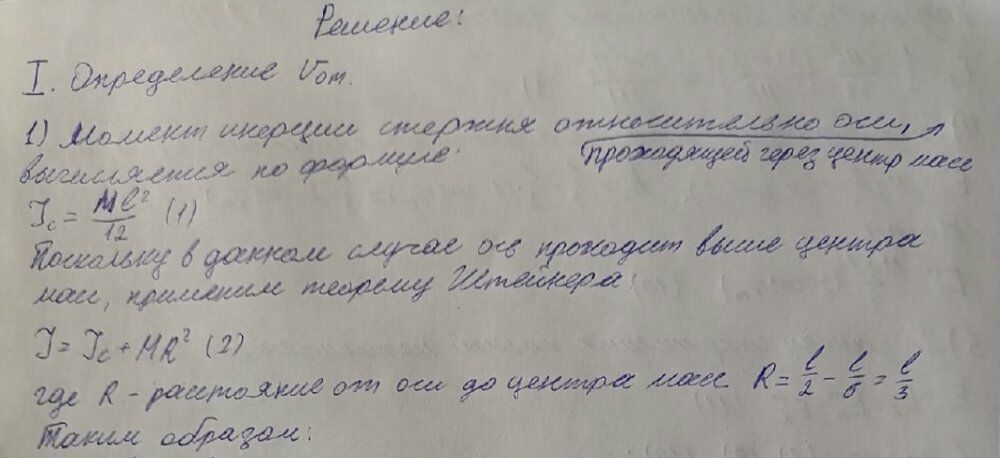 Решение:
I. Определение Vот.
1) Момент инерции стержня относительно оси,
проходящей через центр масс
вычисляется по формуле:
Jc = Ml²/12 (1)
Поскольку в данном случае ось проходит выше центра
масс, применим теорему Штейнера:
J = Jc + MR² (2)
где R - расстояние от оси до центра масс R = l/2 - l/6 = l/3
Таким образом: